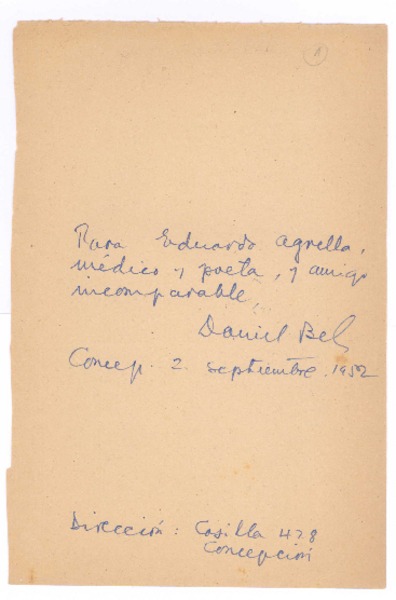 1
Para Eduardo Agrella,
médico y poeta, y amigo
incomparable,
Daniel Bel
Concep. 2. septiembre. 1952
Dirección: Casilla 478
Concepción